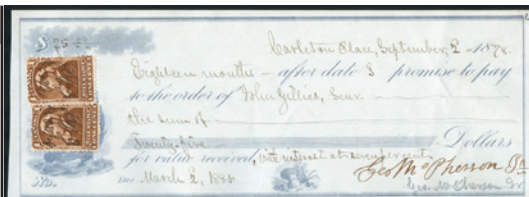 $ 25
Carleton Place, September 2 - 1878.
Eighteen months - after date I promise to pay
to the order of John Gillies, Senr.
the sum of
Twenty-five Dollars
for value received, with interest at seven per cent.
Due March 2, 1880
Geo McPherson Sr
Geo. McPherson Jr
No.